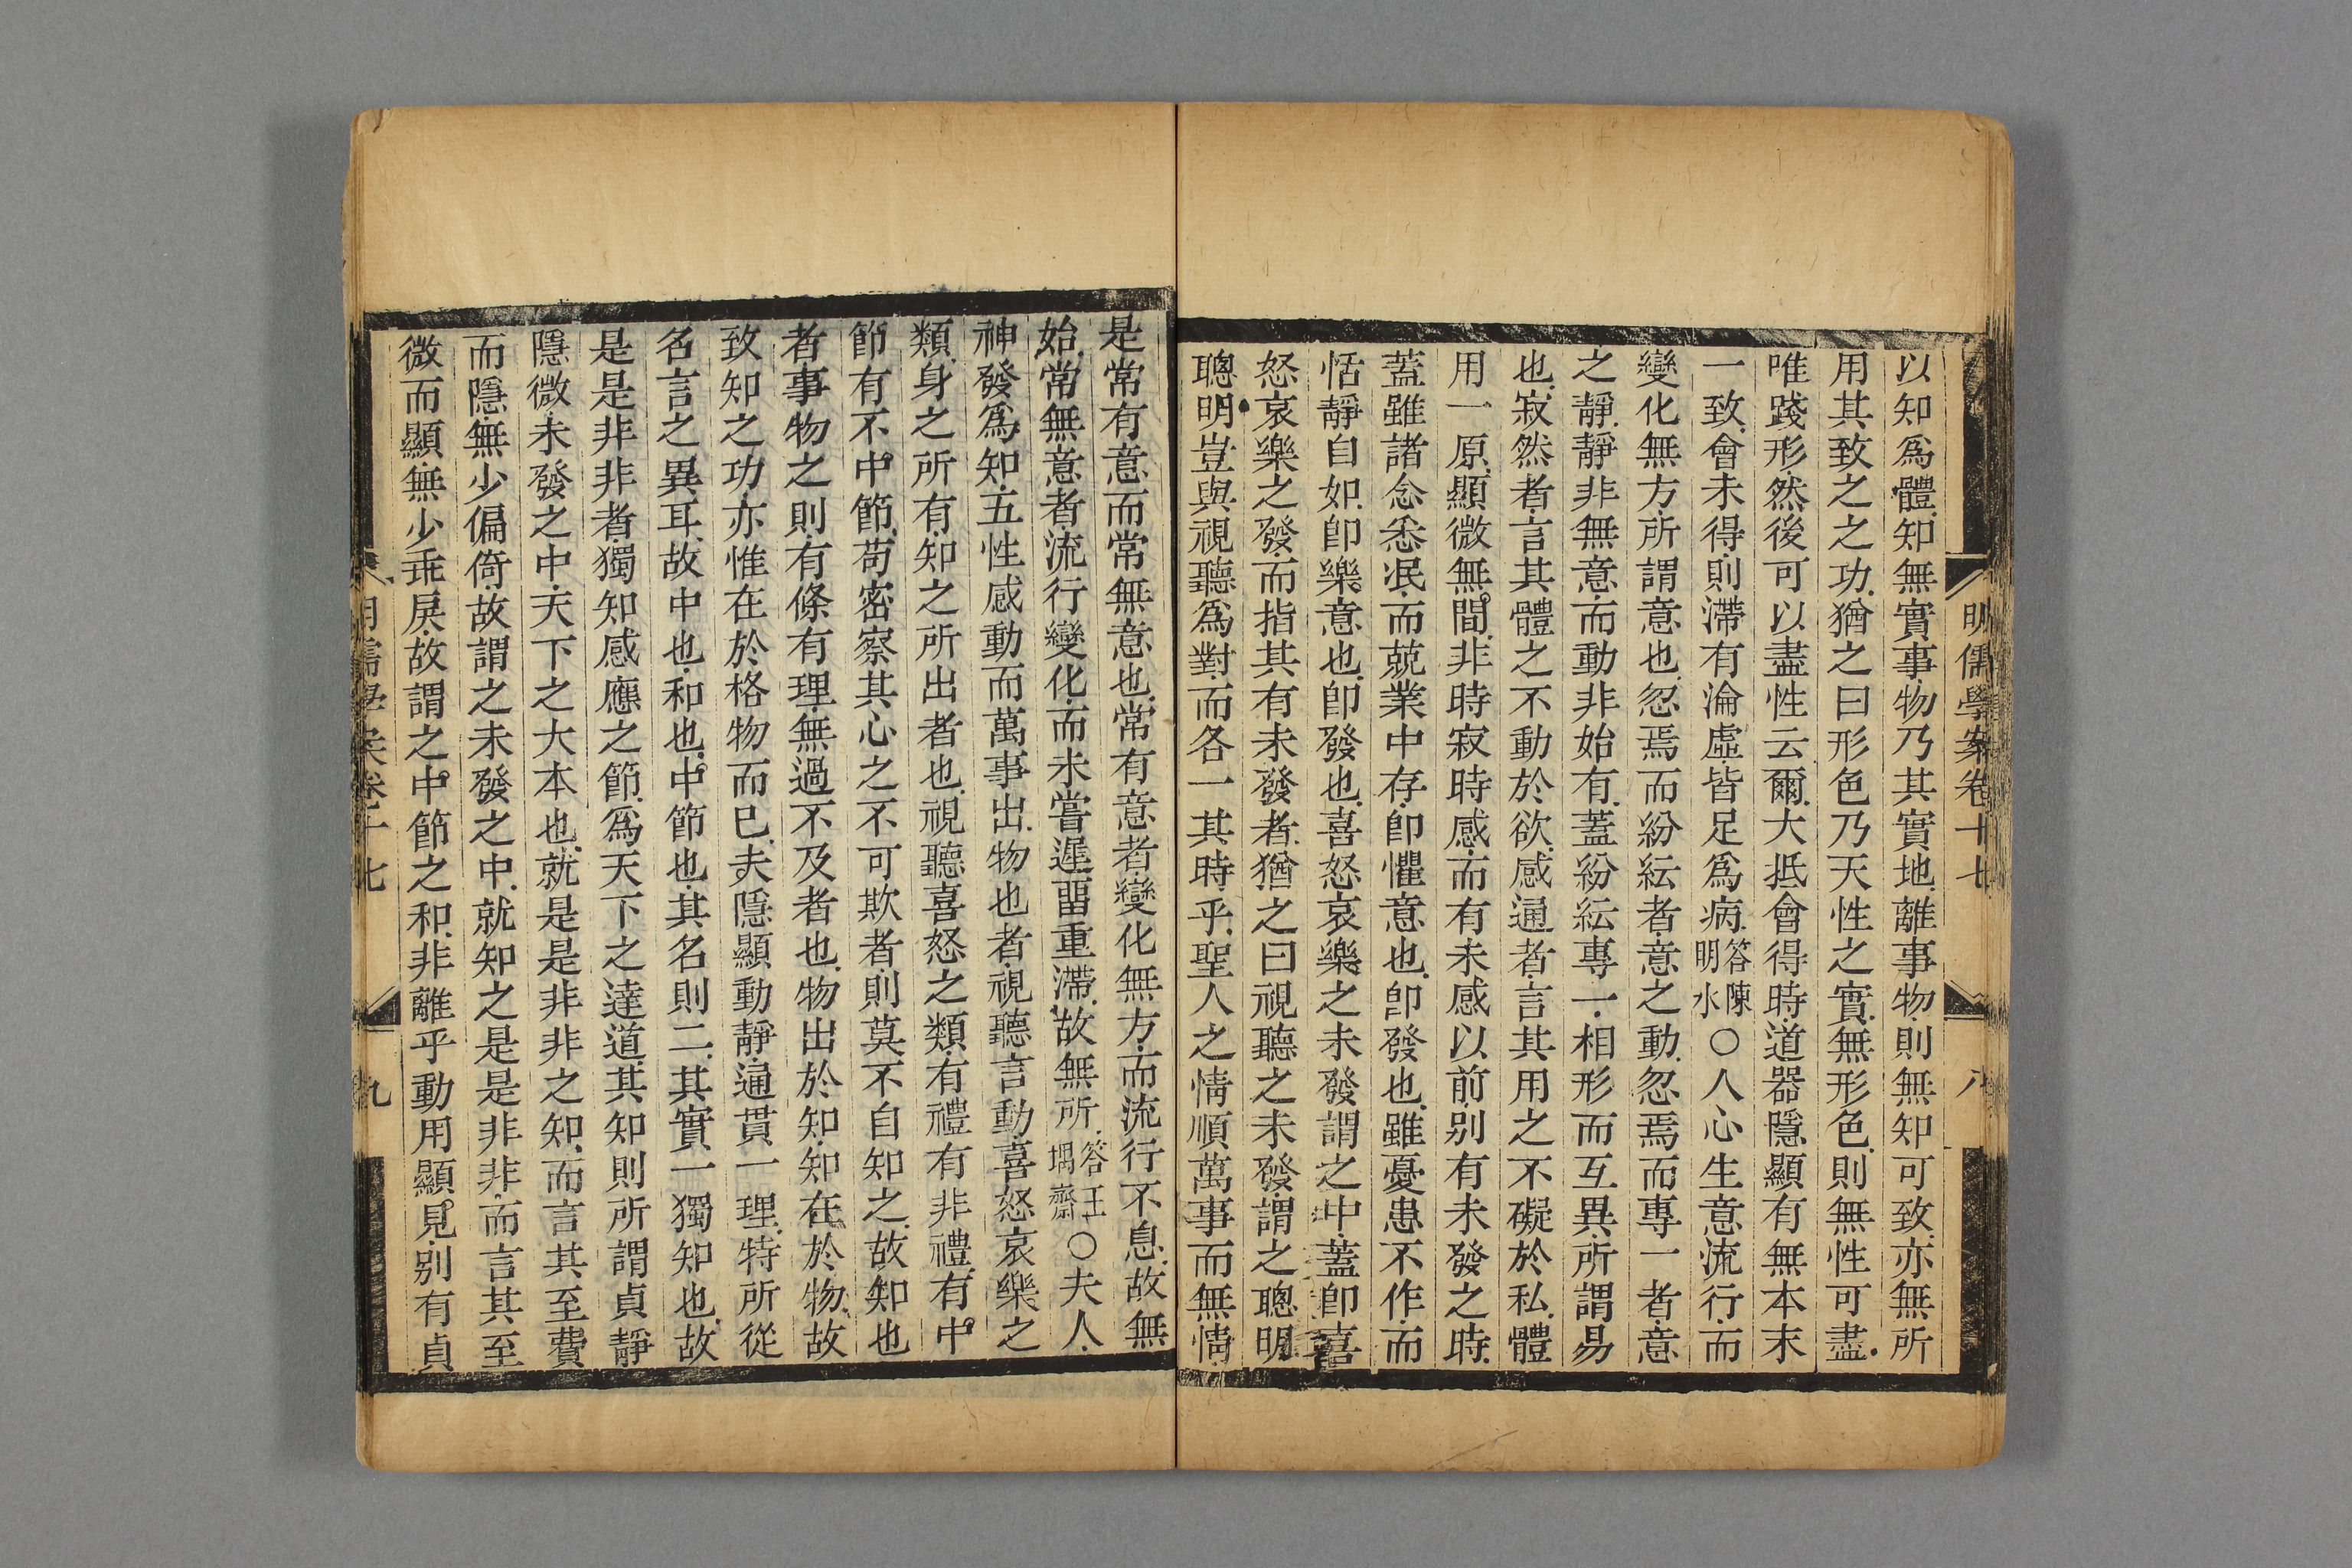 明儒學案卷十七 八
以知爲體知無實事物乃其實地離事物則無知可致亦無所
用其致之之功猶之曰形色乃天性之實無形色則無性可盡
唯踐形然後可以盡性云爾大抵會得時道器隱顯有無本末
一致會未得則滯有淪虛皆足爲病答陳明水○人心生意流行而
變化無方所謂意也忽焉而紛紜者意之動忽焉而專一者意
之靜靜非無意而動非始有蓋紛紜專一相形而互異所謂易
也寂然者言其體之不動於欲感通者言其用之不礙於私體
用一原顯微無間非時寂時感而有未感以前别有未發之時
蓋雖諸念悉泯而兢業中存卽懼意也卽發也雖憂患不作而
恬靜自如卽樂意也卽發也喜怒哀樂之未發謂之中蓋卽喜
怒哀樂之發而指其有未發者猶之曰視聽之未發謂之聰明
聰明豈與視聽爲對而各一其時乎聖人之情順萬事而無情
是常有意而常無意也常有意者變化無方而流行不息故無
始常無意者流行變化而未嘗遲畱重滯故無所答王堣齋○夫人
神發爲知五性感動而萬事出物也者視聽言動喜怒哀樂之
類身之所有知之所出者也視聽喜怒之類有禮有非禮有中
節有不中節苟密察其心之不可欺者則莫不自知之故知也
者事物之則有條有理無過不及者也物出於知知在於物故
致知之功亦惟在於格物而已夫隱顯動靜通貫一理特所從
名言之異耳故中也和也中節也其名則二其實一獨知也故
是是非非者獨知感應之節爲天下之達道其知則所謂貞靜
隱微未發之中天下之大本也就是是非非之知而言其至費
而隱無少偏倚故謂之未發之中就知之是是非非而言其至
微而顯無少乖戾故謂之中節之和非離乎動用顯見别有貞
明儒學案卷十七 九